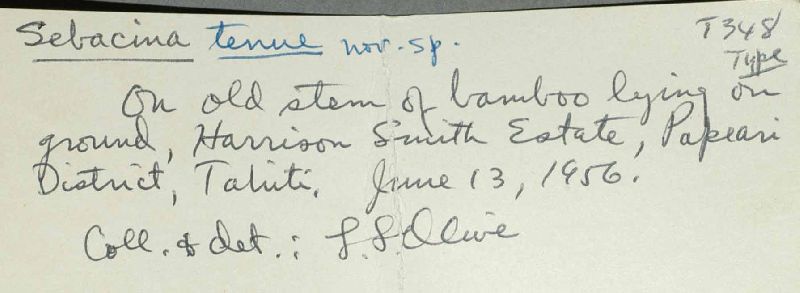 Sebacina tenue nov. sp.
T348
Type
On old stem of bamboo lying on
ground, Harrison Smith Estate, Papeari
District, Tahiti, June 13, 1956.
Coll. & det.: L.S. Olive